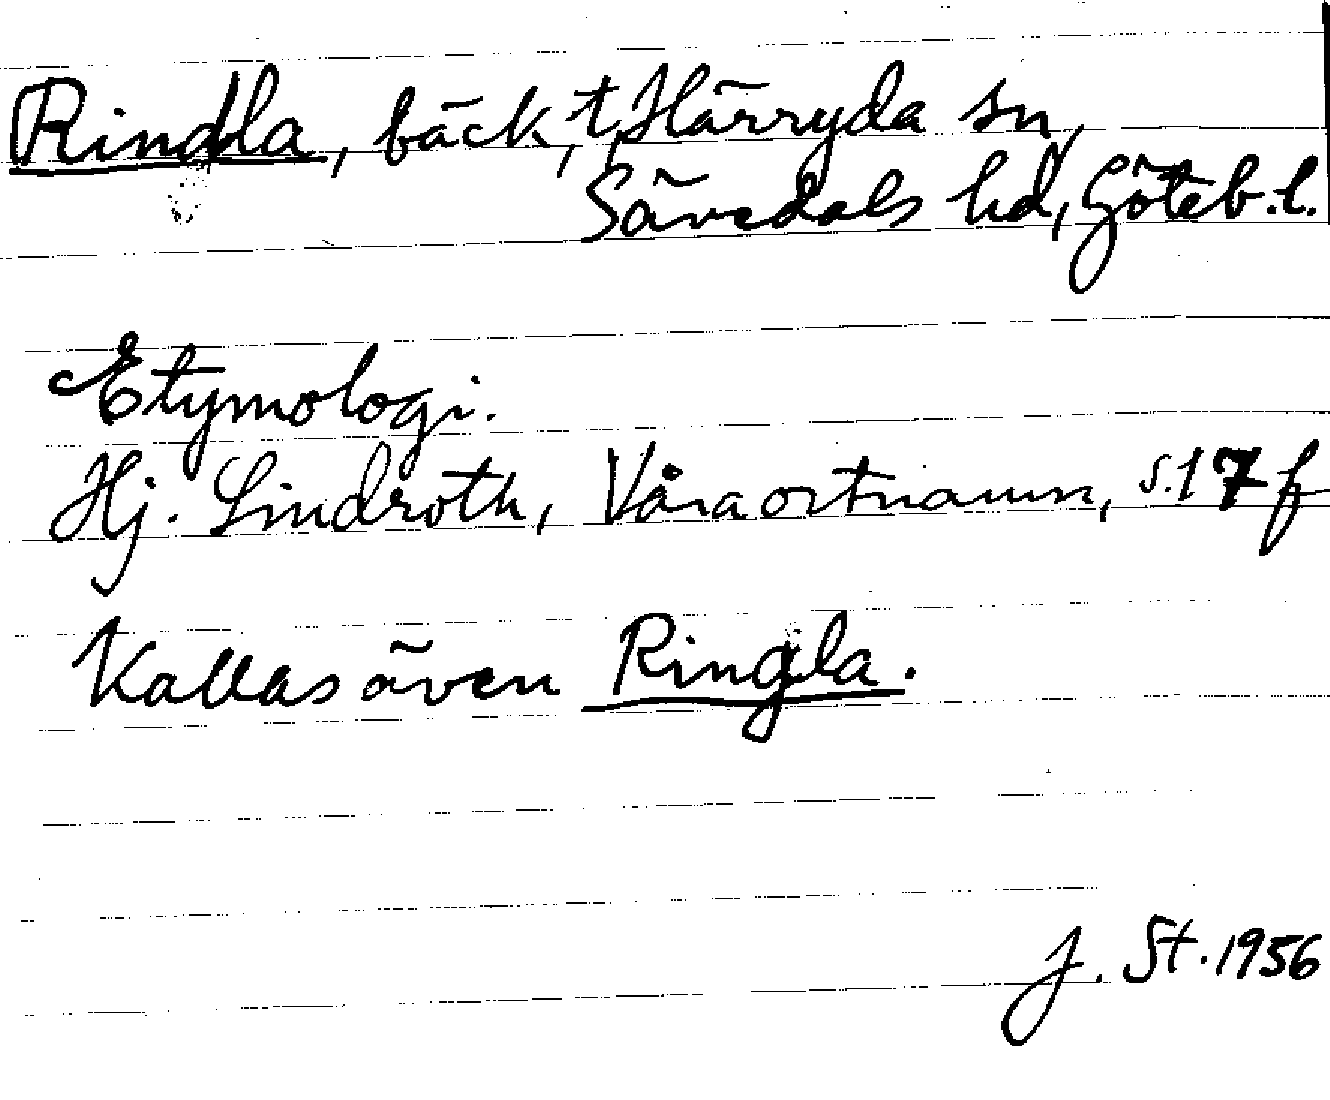 Rindla, bäck, t, Härryda sn,
Sävedals hd, Göteb.l.
Etymologi.
Hj. Lindroth, Våra ortnamn, s.17 f
Kallas även Ringla.
J. St. 1956